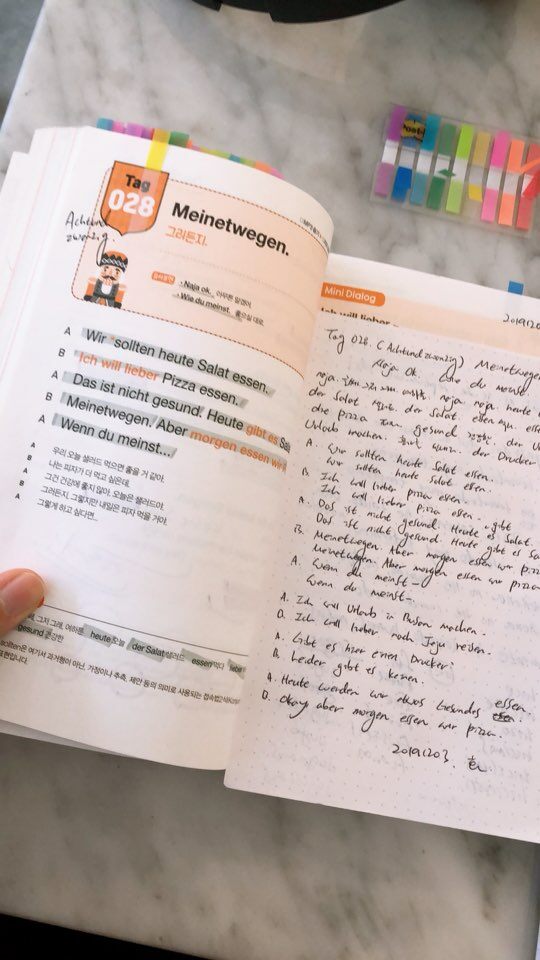 Tag
028
Meinetwegen.
그러든지.
Achtund
zwanzig.
· Naja ok. 아무튼 알겠어.
· Wie du meinst. 좋으실 대로.
A Wir sollten heute Salat essen.
B Ich will lieber Pizza essen.
A Das ist nicht gesund. Heute gibt es
B Meinetwegen. Aber morgen essen wir
A Wenn du meinst...
A 우리 오늘 샐러드 먹으면 좋을 거 같아.
B 나는 피자가 더 먹고 싶은데.
A 그건 건강에 좋지 않아. 오늘은 샐러드야.
B 그러든지. 그렇지만 내일은 피자 먹을 거야.
A 그렇게 하고 싶다면...
heute 오늘 der Salat 샐러드 essen 먹다
gesund 건강한
sollten은 여기서 과거형이 아닌, 가정이나 추측, 제안 등의 의미로 사용되는
표현입니다.
Post-it
Mini Dialog
Ich will lieber
Tag 028. (Achtundzwanzig) Meinetwegen
Naja ok. du meinst
naja. naja. naja. heute
der Salat der Salat. essen
die pizza gesund der
Urlaub machen. der Drucker
A. Wir sollten heute Salat essen.
Wir sollten heute Salat essen.
B. Ich will lieber pizza essen.
Ich will lieber pizza essen. gibt
A. Das ist nicht gesund. Heute es Salat.
Das ist nicht gesund. Heute gibt es
B. Meinetwegen. Aber morgen essen wir
Meinetwegen. Aber morgen essen wir pizza
A. Wenn du meinst
Wenn du meinst
A. Ich will Urlaub in Busan machen.
B. Ich will lieber nach Jeju reisen.
A. Gibt es hier einen Drucker?
B. Leider gibt es keinen.
A. Heute werden wir etwas Gesundes essen
B. Okay aber morgen essen wir pizza.
20191203.